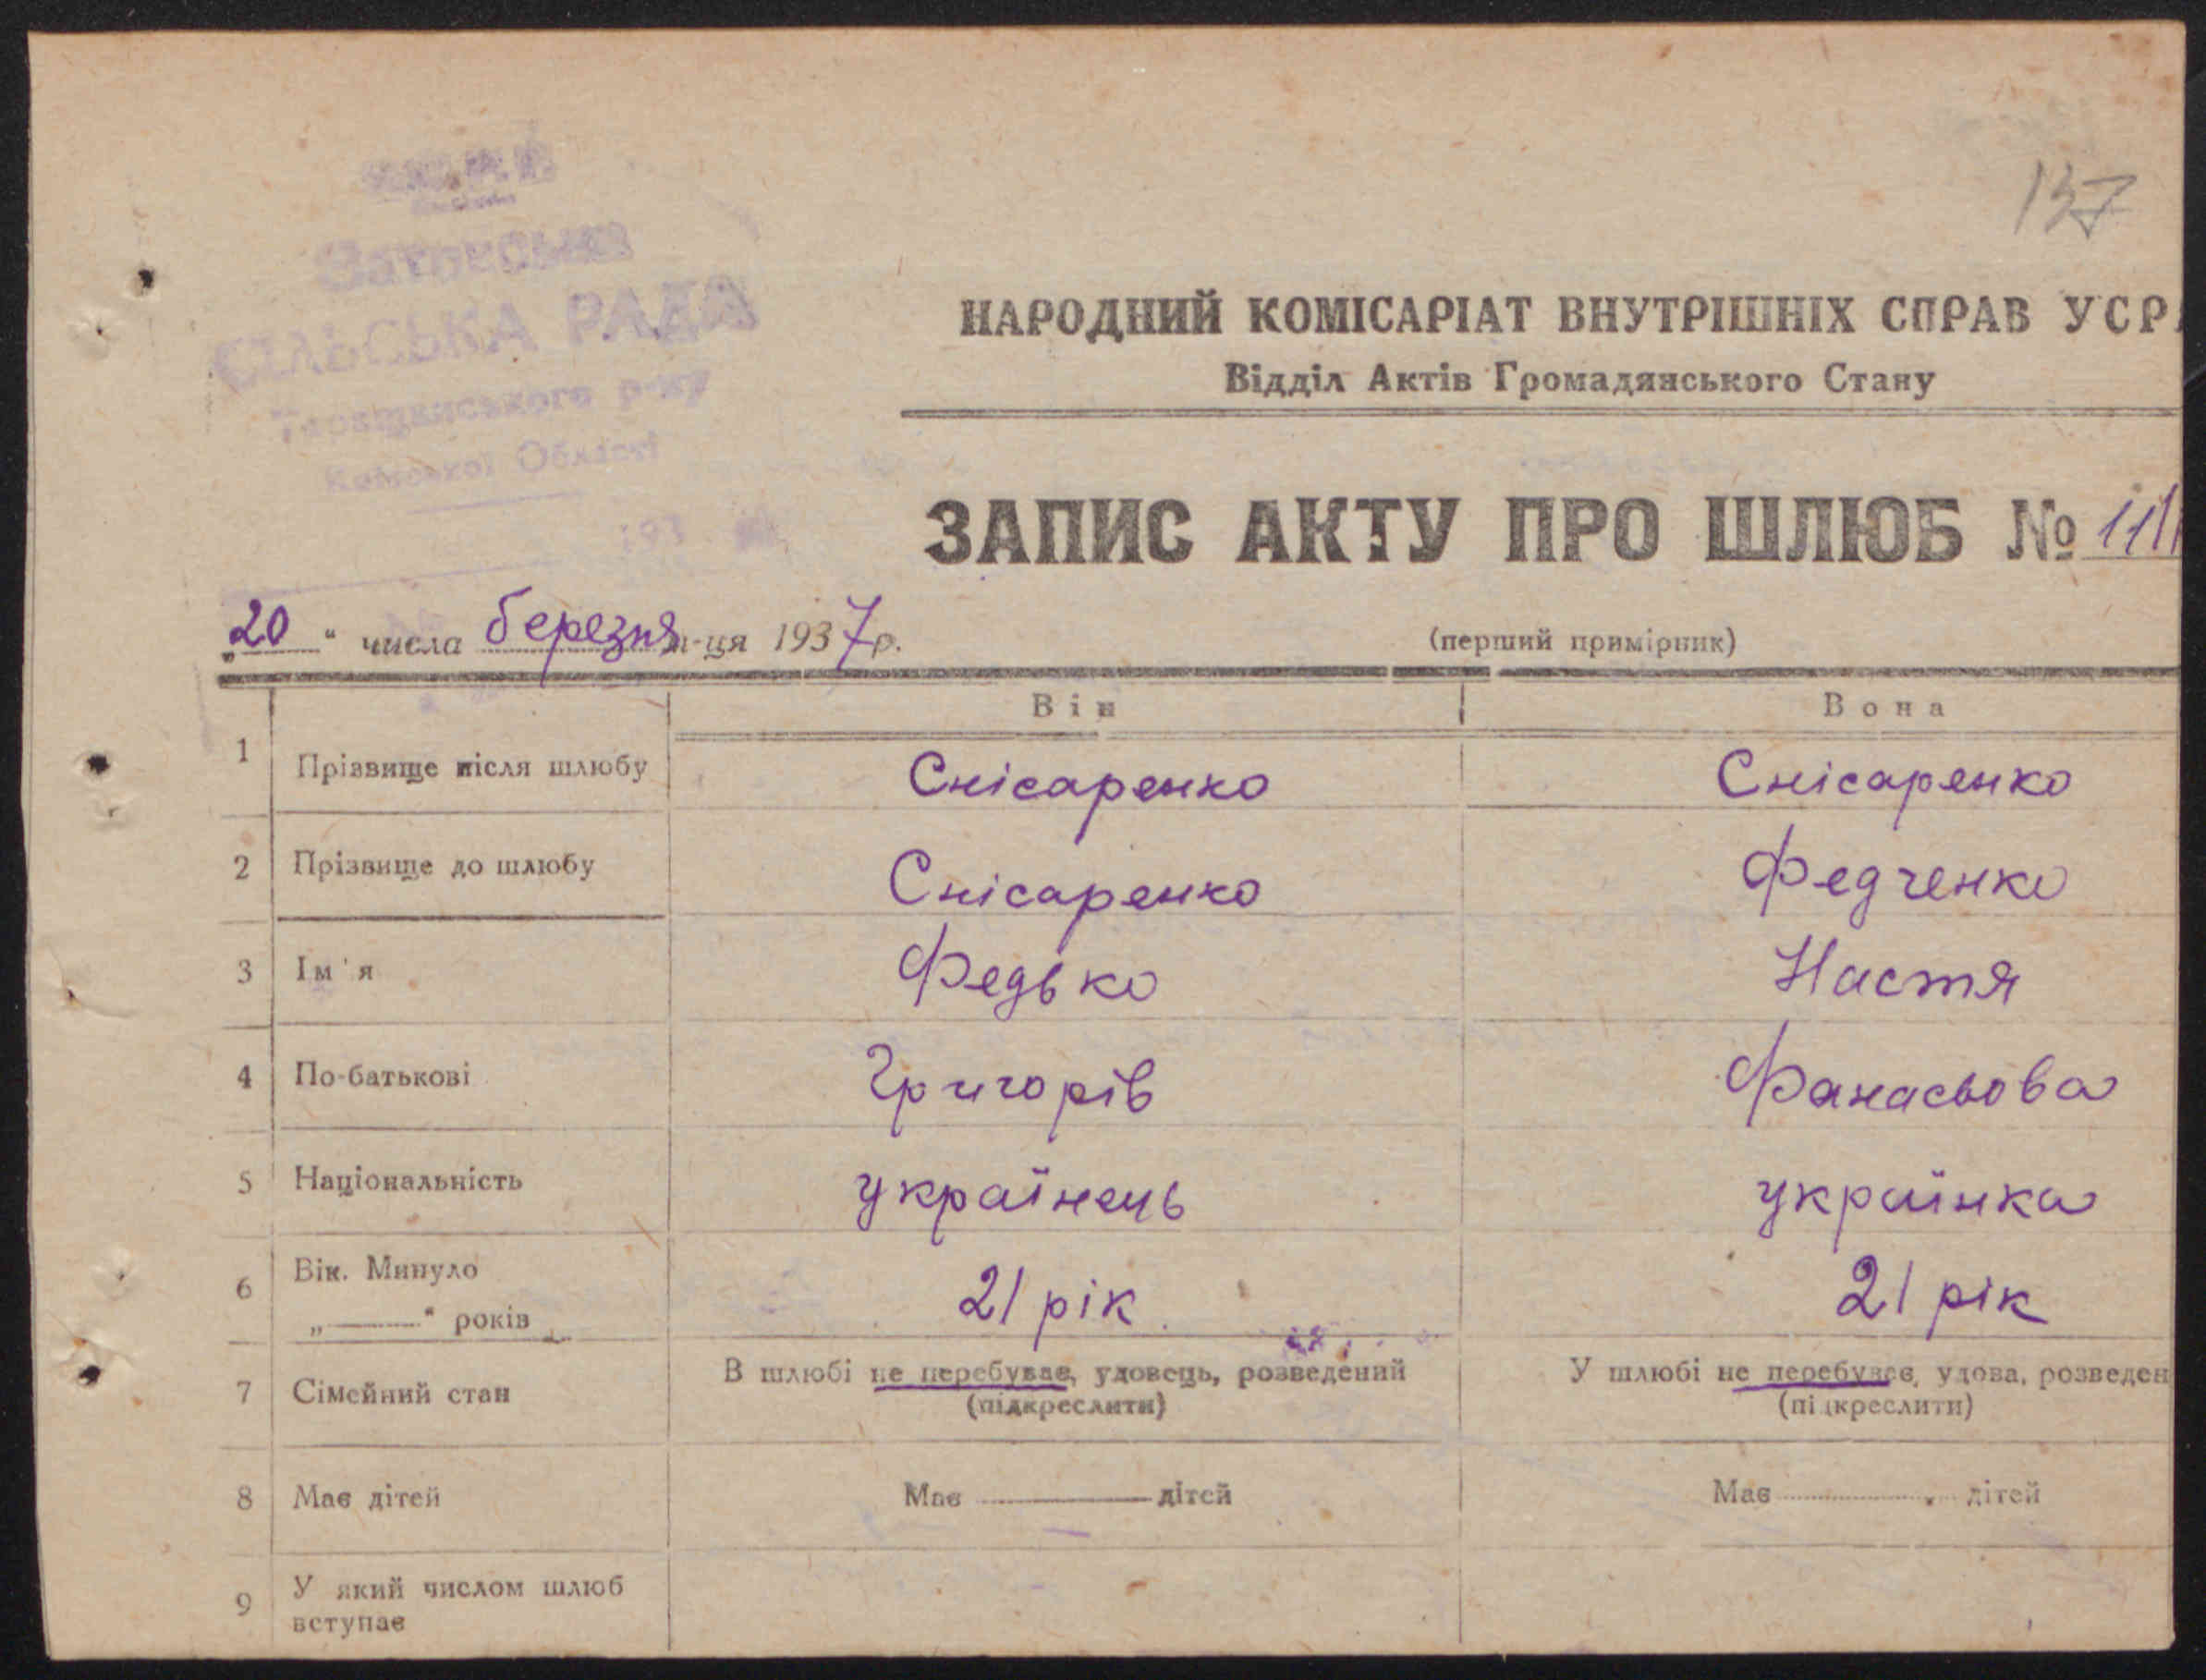 137
СІЛЬСЬКА РАДА
р-ну
Області
193
НАРОДНИЙ КОМІСАРІАТ ВНУТРІШНІХ СПРАВ УСР
Відділ Актів Громадянського Стану
ЗАПИС АКТУ ПРО ШЛЮБ №
„20“ числа березня м-ця 1937р.
(перший примірник)
Він Вона
1 Прізвище після шлюбу Снісаренко Снісаренко
2 Прізвище до шлюбу Снісаренко Федченко
3 Ім'я Федько Настя
4 По-батькові Григорів Фанасьова
5 Національність українець українка
6 Вік. Минуло
„——“ років 21 рік 21 рік
7 Сімейний стан В шлюбі не перебуває, удовець, розведений У шлюбі не перебуває, удова, розведен
(підкреслити) (підкреслити)
8 Має дітей Має —— дітей Має .......... дітей
9 У який числом шлюб
вступає